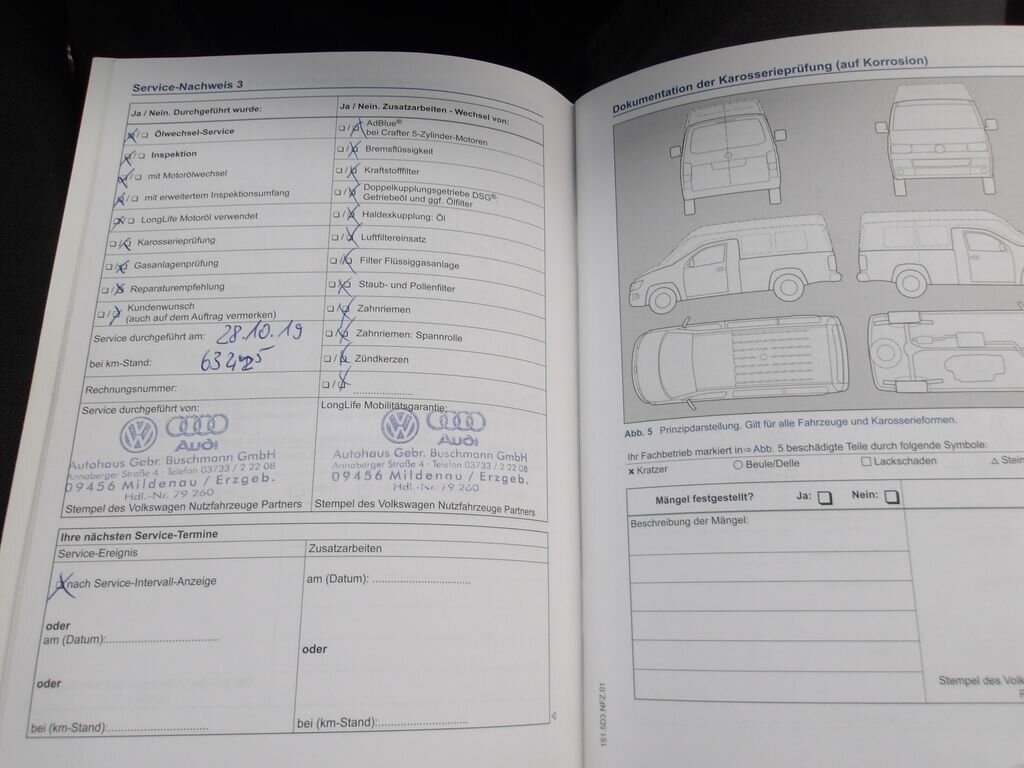 Service-Nachweis 3
Ja / Nein. Durchgeführt wurde:
Ölwechsel-Service
Inspektion
mit Motorölwechsel
mit erweitertem Inspektionsumfang
LongLife Motoröl verwendet
Karosserieprüfung
Gasanlagenprüfung
Reparaturempfehlung
Kundenwunsch
(auch auf dem Auftrag vermerken)
Service durchgeführt am: 28.10.19
bei km-Stand:
Rechnungsnummer:
Service durchgeführt von:
Audi
Autohaus Gebr. Buschmann GmbH
Annaberger Straße 4 · Telefon 03733 / 2 22 08
09456 Mildenau / Erzgeb.
Hdl.-Nr. 79 260
Stempel des Volkswagen Nutzfahrzeuge Partners
Ja / Nein. Zusatzarbeiten - Wechsel von:
AdBlue®
bei Crafter 5-Zylinder-Motoren
Bremsflüssigkeit
Kraftstofffilter
Doppelkupplungsgetriebe DSG®:
Getriebeöl und ggf. Ölfilter
Haldexkupplung: Öl
Luftfiltereinsatz
Filter Flüssiggasanlage
Staub- und Pollenfilter
Zahnriemen
Zahnriemen: Spannrolle
Zündkerzen
LongLife Mobilitätsgarantie:
Audi
Autohaus Gebr. Buschmann GmbH
Annaberger Straße 4 · Telefon 03733 / 2 22 08
09456 Mildenau / Erzgeb.
Hdl.-Nr. 79 260
Stempel des Volkswagen Nutzfahrzeuge Partners
Ihre nächsten Service-Termine
Service-Ereignis
nach Service-Intervall-Anzeige
oder
am (Datum):
oder
bei (km-Stand):
Zusatzarbeiten
am (Datum):
oder
bei (km-Stand):
Dokumentation der Karosserieprüfung (auf Korrosion)
Abb. 5 Prinzipdarstellung. Gilt für alle Fahrzeuge und Karosserieformen.
Ihr Fachbetrieb markiert in ⇒ Abb. 5 beschädigte Teile durch folgende Symbole:
x Kratzer ○ Beule/Delle □ Lackschaden △ Stein
Mängel festgestellt? Ja: Nein:
Beschreibung der Mängel:
Stempel des Volk
151.5D3.NFZ.01